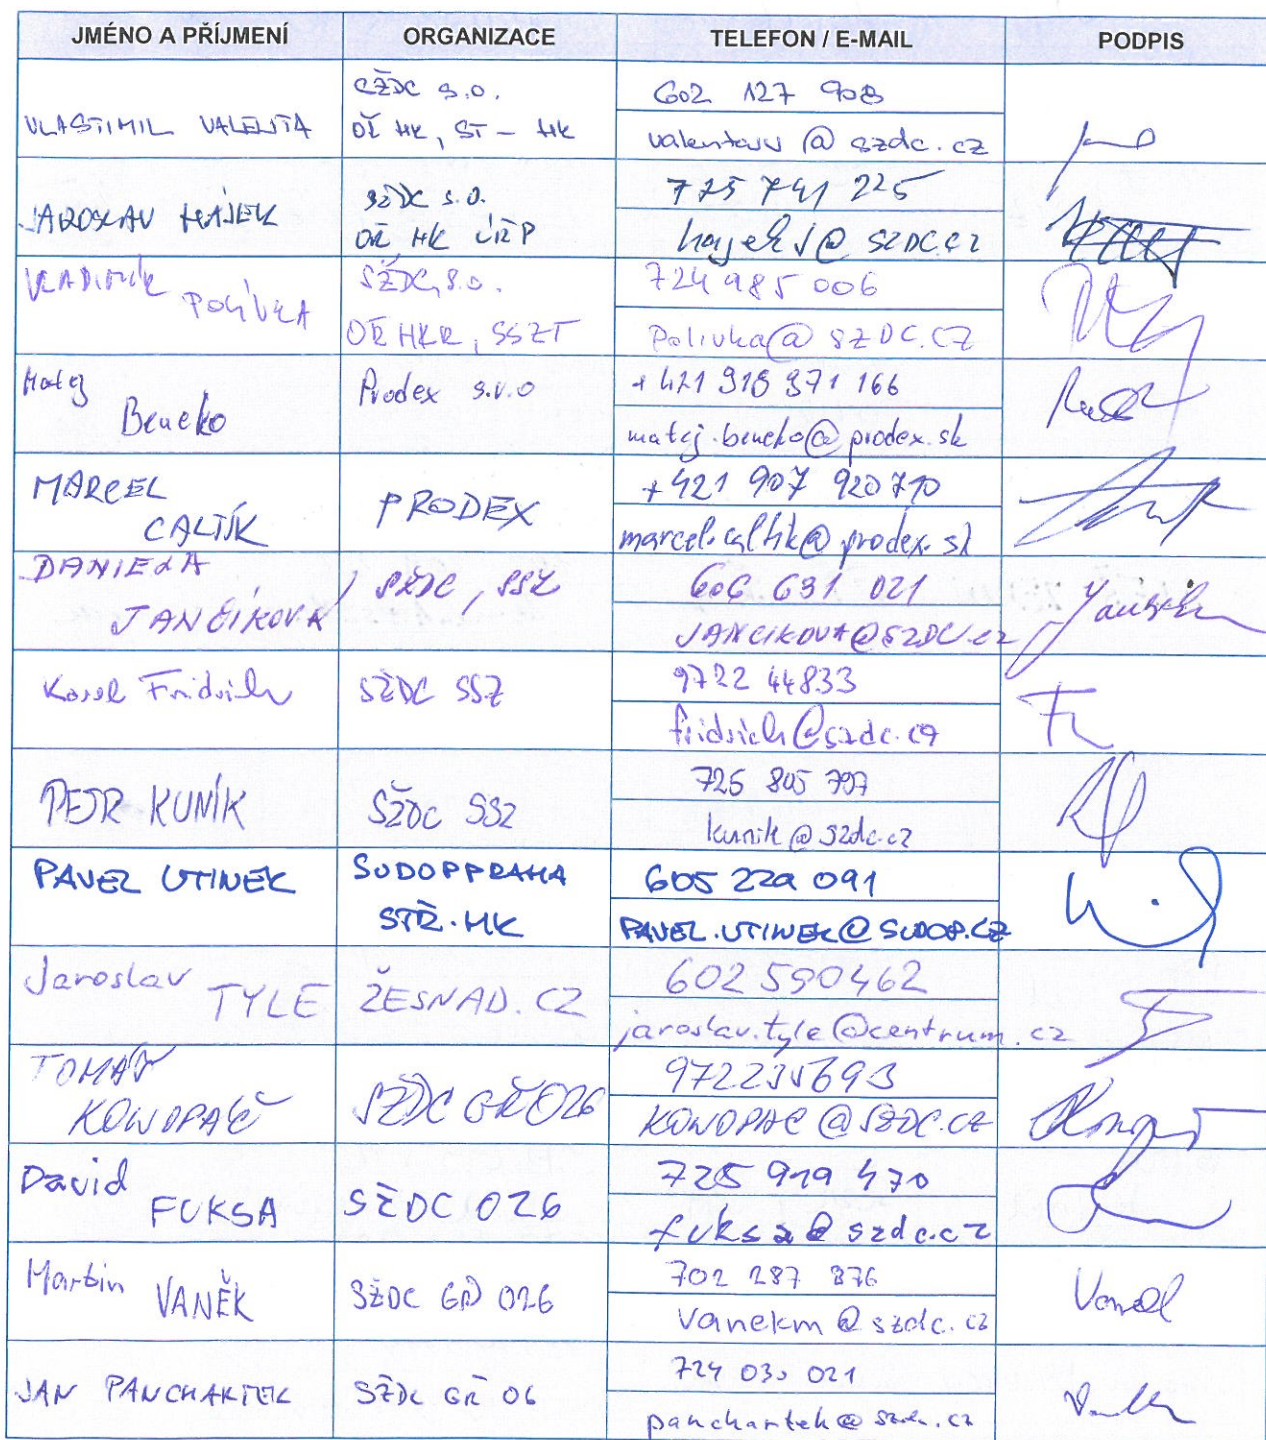 JMÉNO A PŘÍJMENÍ ORGANIZACE TELEFON / E-MAIL PODPIS
VLASTIMIL VALENTA
SŽDC s.o.
OŘ HK, ST - HK
602 127 908
@ szdc.cz
JAROSLAV HÁJEK
SŽDC s.o.
OŘ HK ÚŘP
725 741 225
hajekj@szdc.cz
VLADIMÍR POLÍVKA
SŽDC, s.o.
OŘ HKR, SSZT
724 985 006
Polivka@SZDC.CZ
Matej
Bencko
Prodex s.r.o
+421 918 971 166
matej.bencko@prodex.sk
MARCEL
CALTÍK
PRODEX
+421 907 920 710
marcel.caltik@prodex.sk
DANIELA
JANČÍKOVÁ
SŽDC, SSZ
606 631 021
JANCIKOVA@SZDC.cz
Karel Fridrich
SŽDC SSZ
9722 44833
fridrich@szdc.cz
PETR KUNÍK
SŽDC SSZ
725 805 797
kunik@szdc.cz
PAVEL UTINEK
SUDOP PRAHA
STŘ. HK
605 229 091
PAVEL.UTINEK@SUDOP.CZ
Jaroslav
TYLE
ŽESNAD.CZ
602 590462
jaroslav.tyle@centrum.cz
TOMÁŠ
KONOPÁČ
SŽDC GŘ O26
972235693
KONOPAC@SZDC.CZ
David
FUKSA
SŽDC O26
725 919 470
fuksa@szdc.cz
Martin VANĚK
SŽDC GŘ O26
702 287 876
Vanekm@szdc.cz
JAN PANCHARTEK
SŽDC GŘ O6
724 030 021
panchartek@szdc.cz